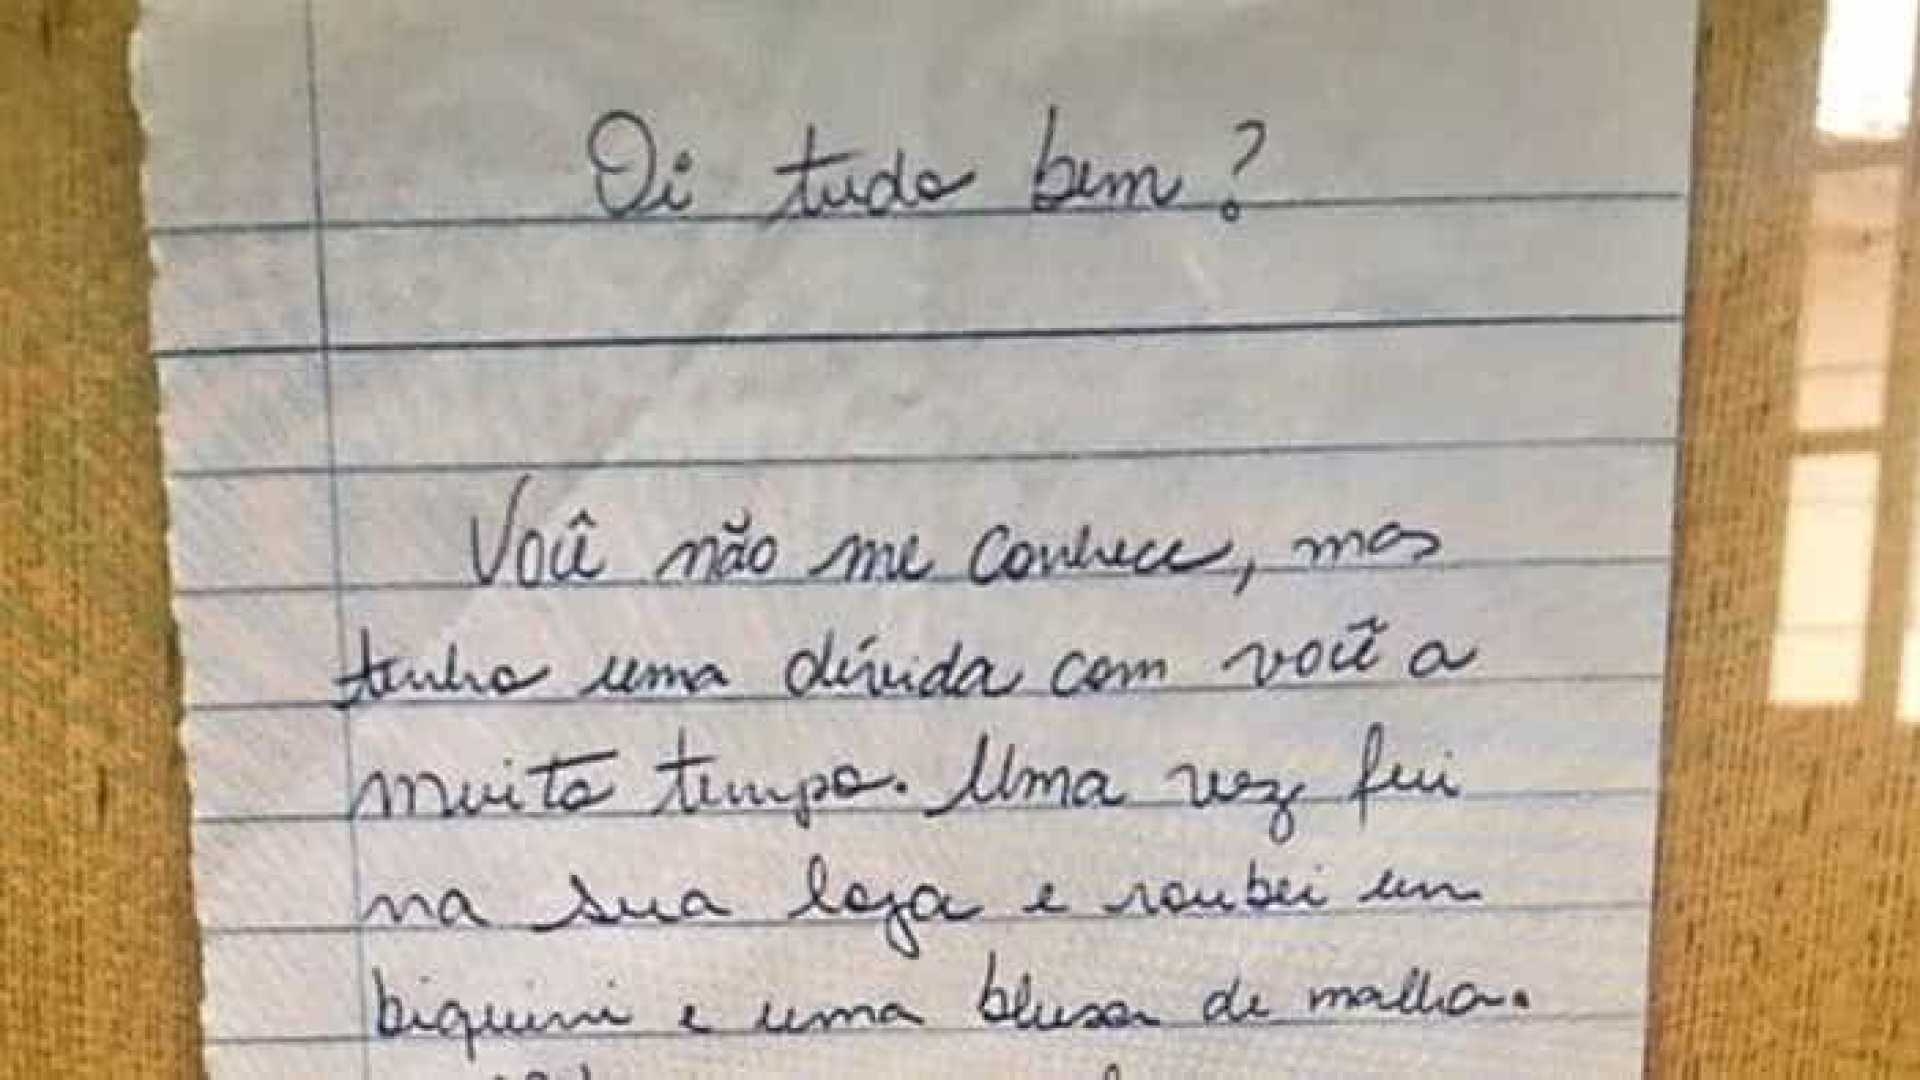 Oi tudo bem?
Você não me conhece, mas
tenho uma dívida com você a
muito tempo. Uma vez fui
na sua loja e roubei um
biquini e uma blusa de malha.